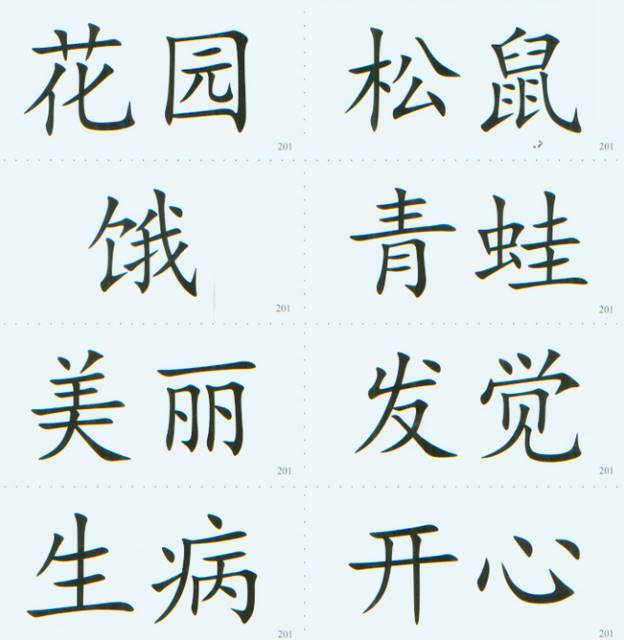 花园 松鼠
201 201
饿 青蛙
201 201
美丽 发觉
201 201
生病 开心
201 201